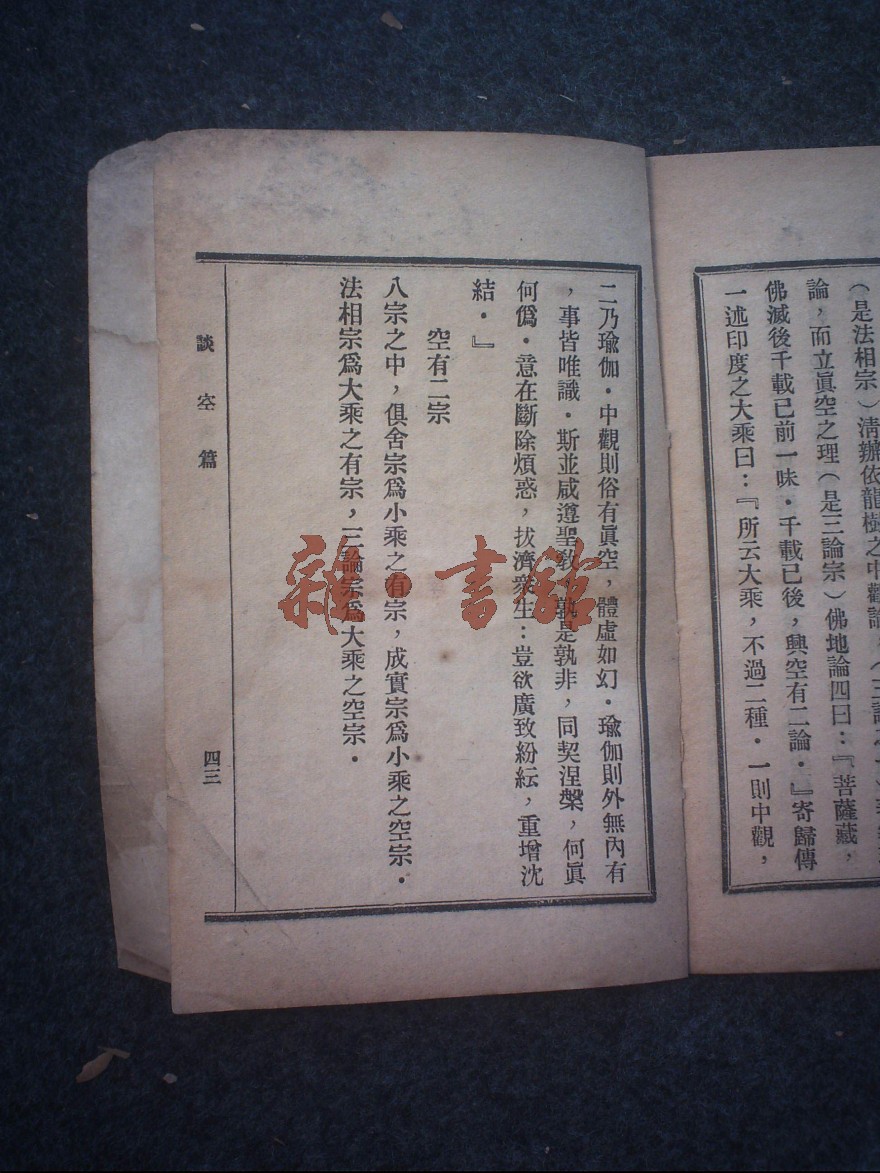 （是法相宗）淸辦依龍樹之中觀論
論，而立眞空之理（是三論宗）佛地論四曰：『菩薩藏，
佛滅後千載已前一味．千載已後，興空有二論．』寄歸傳
一述印度之大乘曰：『所云大乘，不過二種．一則中觀，
二乃瑜伽．中觀則俗有眞空，體虛如幻．瑜伽則外無內有
，事皆唯識．斯並咸遵聖敎，孰是孰非，同契涅槃，何眞
何僞．意在斷除煩惑，拔濟衆生：豈欲廣致紛紜，重增沈
結．』
空有二宗
八宗之中，俱舍宗爲小乘之有宗，成實宗爲小乘之空宗．
法相宗爲大乘之有宗，三論宗爲大乘之空宗．
談空篇
四三
雜·書館